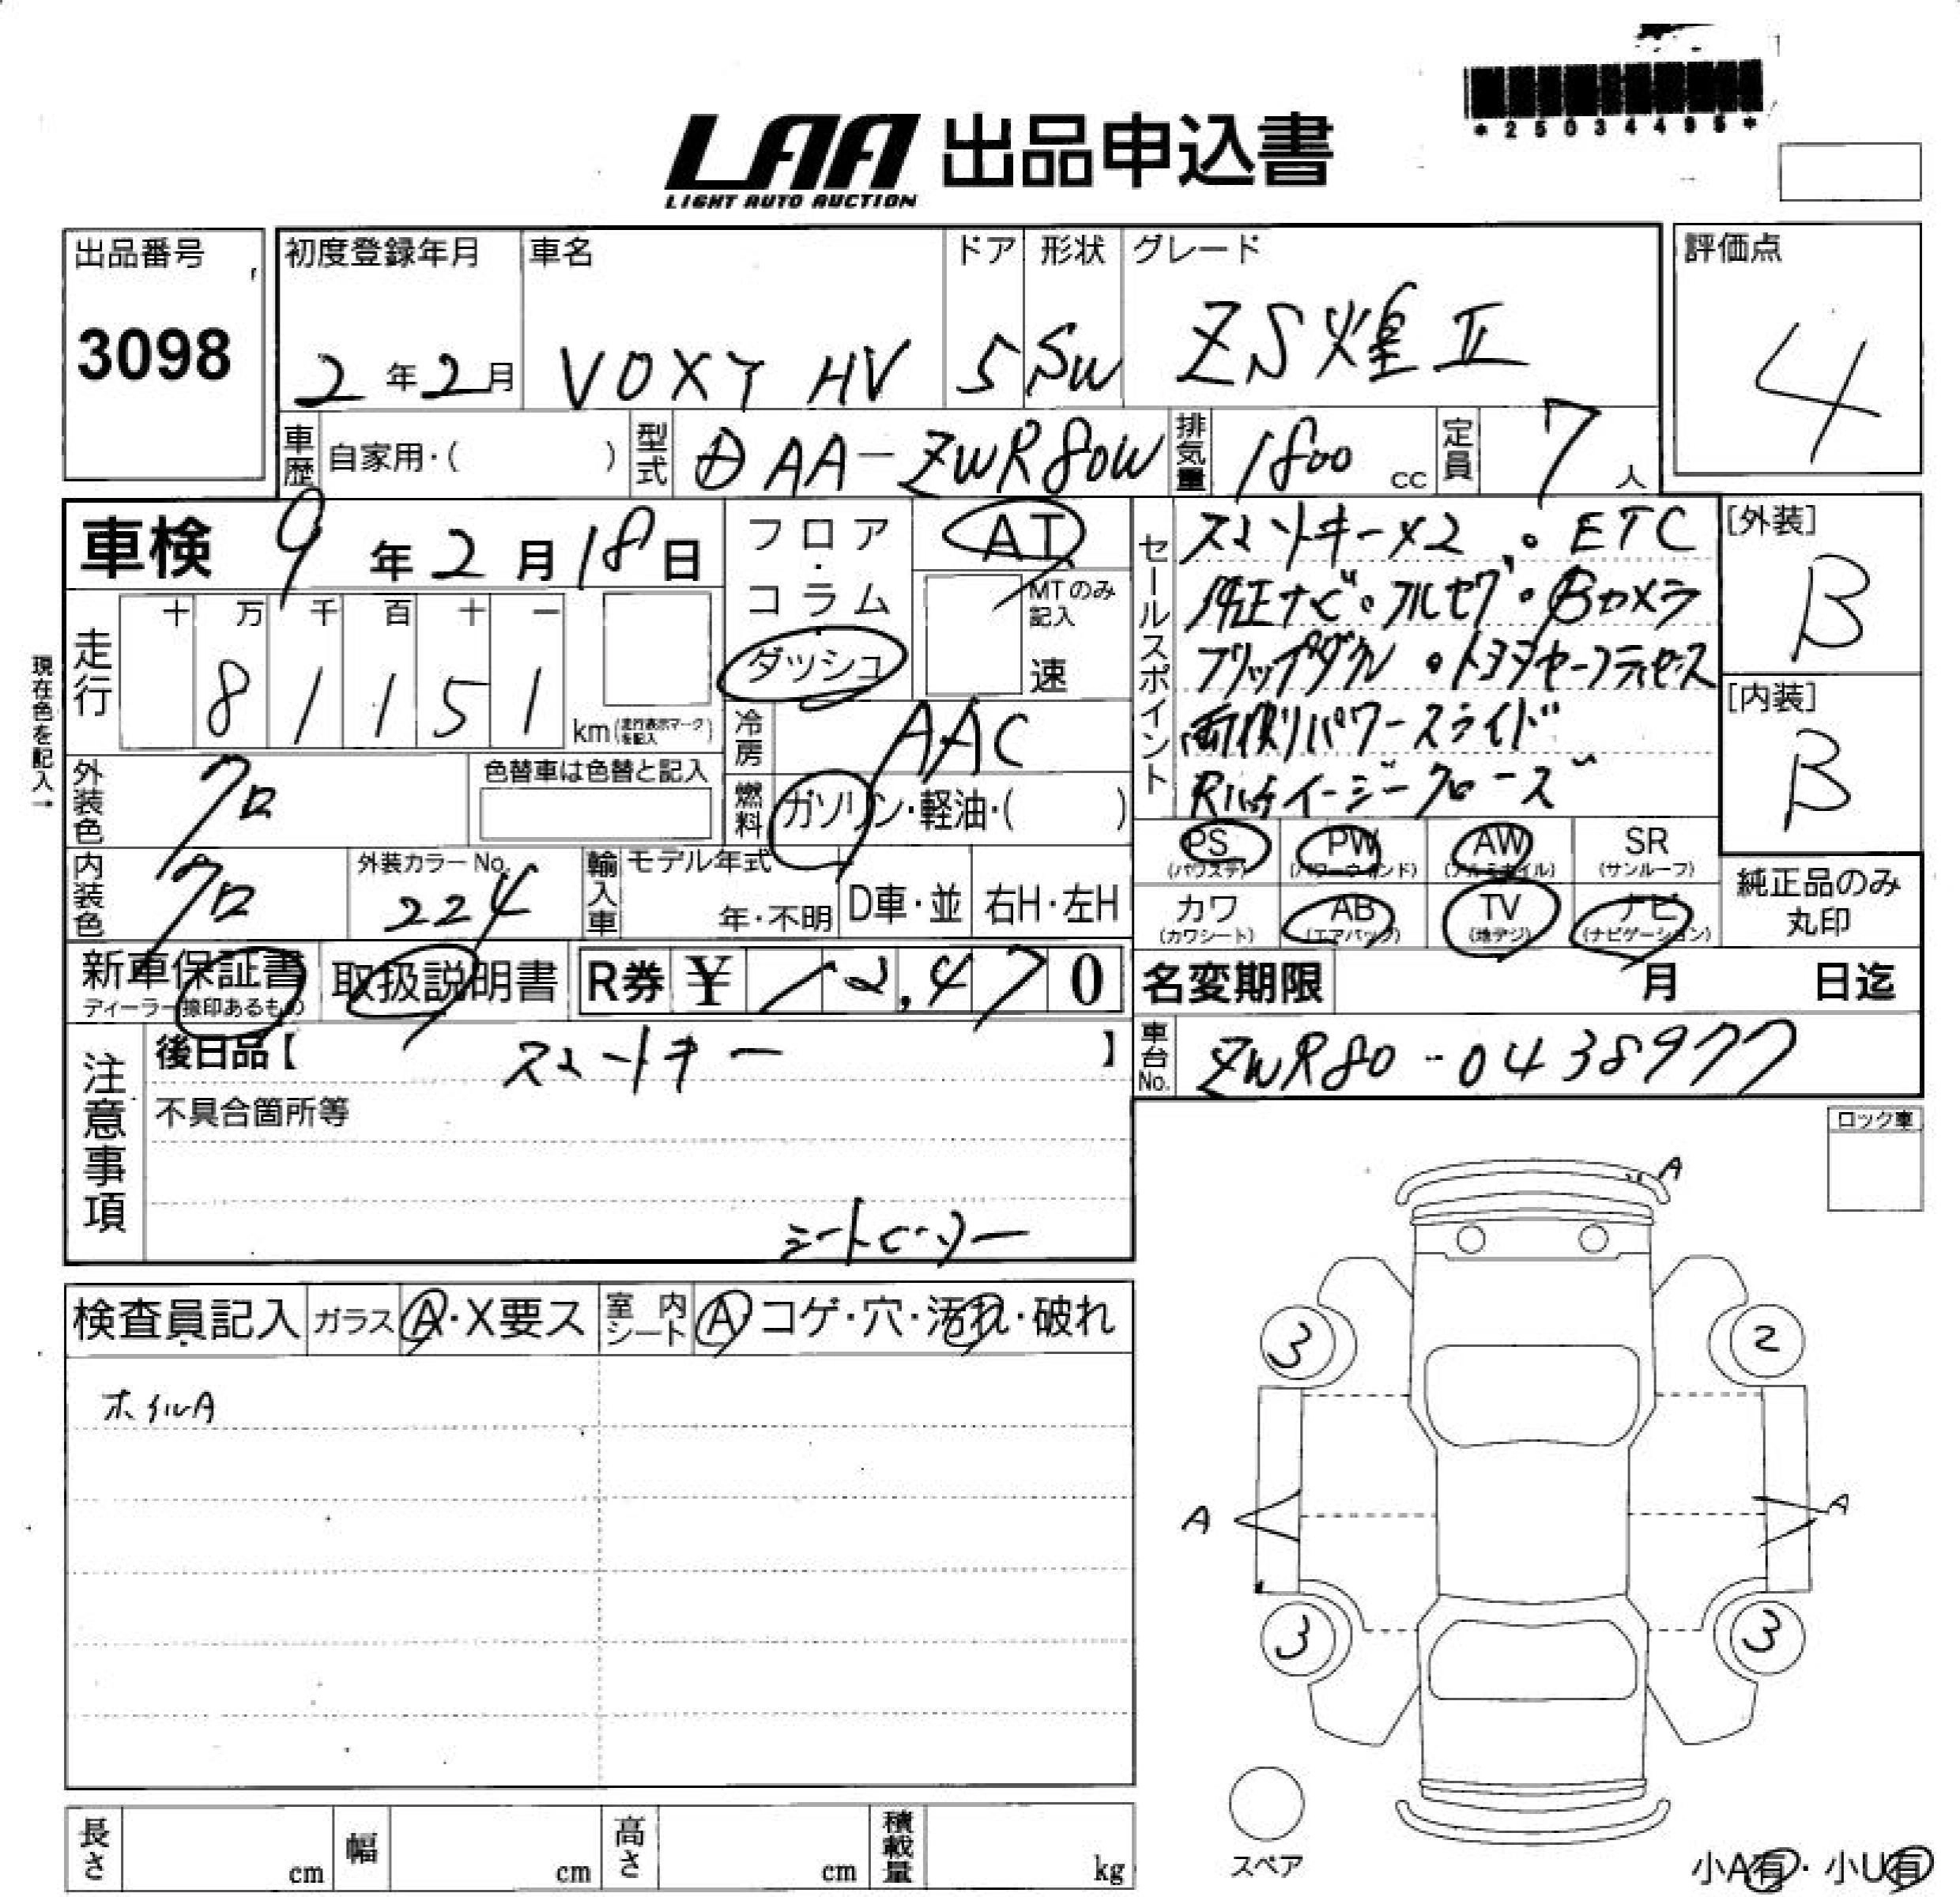 *25034495*
LAA 出品申込書
LIGHT AUTO AUCTION
出品番号 3098
初度登録年月 2年2月
車名 VOXY HV
ドア 5
形状 SW
グレード ZS煌Ⅱ
評価点 4
車歴 自家用・( )
型式 DAA-ZWR80W
排気量 1800 cc
定員 7 人
車検 9年2月18日
フロア・コラム ダッシュ
AT
MTのみ記入 速
セールスポイント
スマートキー×2 。ETC
純正ナビ。フルセグ・Bカメラ
フリップダウン ・トヨタセーフティセンス
両側パワースライド
Rハッチイージークローズ
[外装] B
[内装] B
現在色を記入→
走行 十 万 千 百 十 一
8 1 1 5 1 km (走行表示マークを記入)
冷房 AAC
外装色 クロ
色替車は色替と記入
燃料 ガソリン・軽油・( )
PS (パワステ) PW (パワーウインド) AW (アルミホイル) SR (サンルーフ)
カワ (カワシート) AB (エアバッグ) TV (地デジ) ナビ (ナビゲーション)
純正品のみ丸印
内装色 クロ
外装カラーNo. 224
輸入車 モデル年式 年・不明 D車・並 右H・左H
新車保証書 ディーラー捺印あるもの
取扱説明書
R券 ¥ 12,470
名変期限 月 日迄
車台No. ZWR80-0438977
注意事項
後日品【 スマートキー 】
不具合箇所等
シートヒーター
ロック車
検査員記入 ガラス A・X要ス 室内シート A コゲ・穴・汚れ・破れ
ホイルA
A
3 2
A A
3 3
スペア
小A有・小U有
長さ cm 幅 cm 高さ cm 積載量 kg